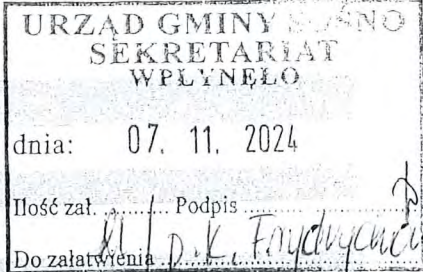 URZĄD GMINY SOŚNO
SEKRETARIAT
WPŁYNĘŁO
dnia: 07. 11. 2024
Ilość zał. ........... Podpis ...........
Do załatwienia p. K.